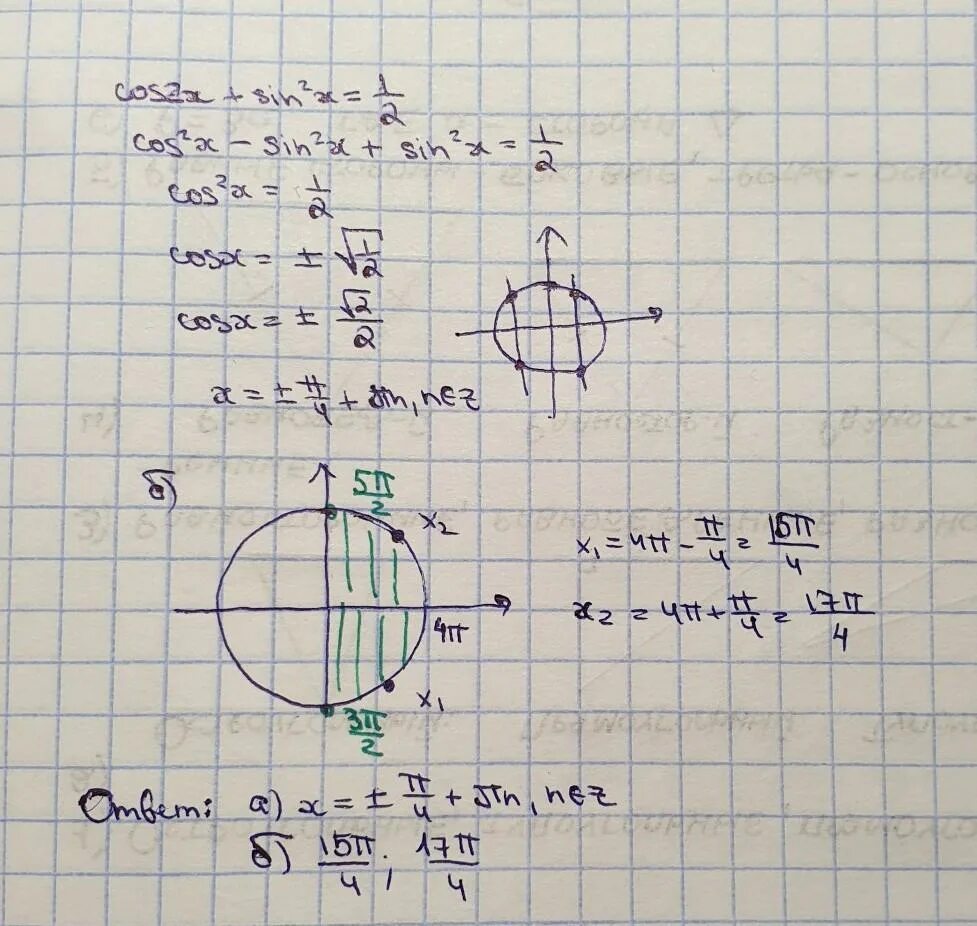 cos2x + sin²x = 1/2
cos²x - sin²x + sin²x = 1/2
cos²x = 1/2
cosx = ± √(1/2)
cosx = ± √2/2
x = ± π/4 + πn, n∈z
б)
5π/2
x₂
4π
x₁
3π/2
x₁ = 4π - π/4 = 15π/4
x₂ = 4π + π/4 = 17π/4
Ответ: а) x = ± π/4 + πn, n∈z
б) 15π/4; 17π/4